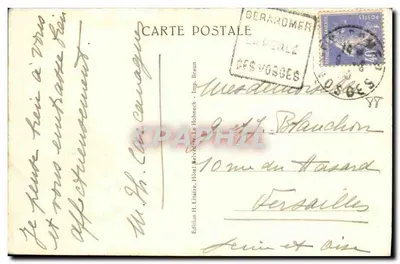 CARTE POSTALE
GERARDMER
LA PERLE
DES VOSGES
POSTES
Je pense bien à vous
et vous embrasse bien
affectueusement
M. Th.
Mesdemoiselles
Blanchon
10 rue du Hasard
Versailles
Seine et Oise
88
Edition H. Lhuire, Hôtel Belvédère Le Hohneck - Imp. Braun